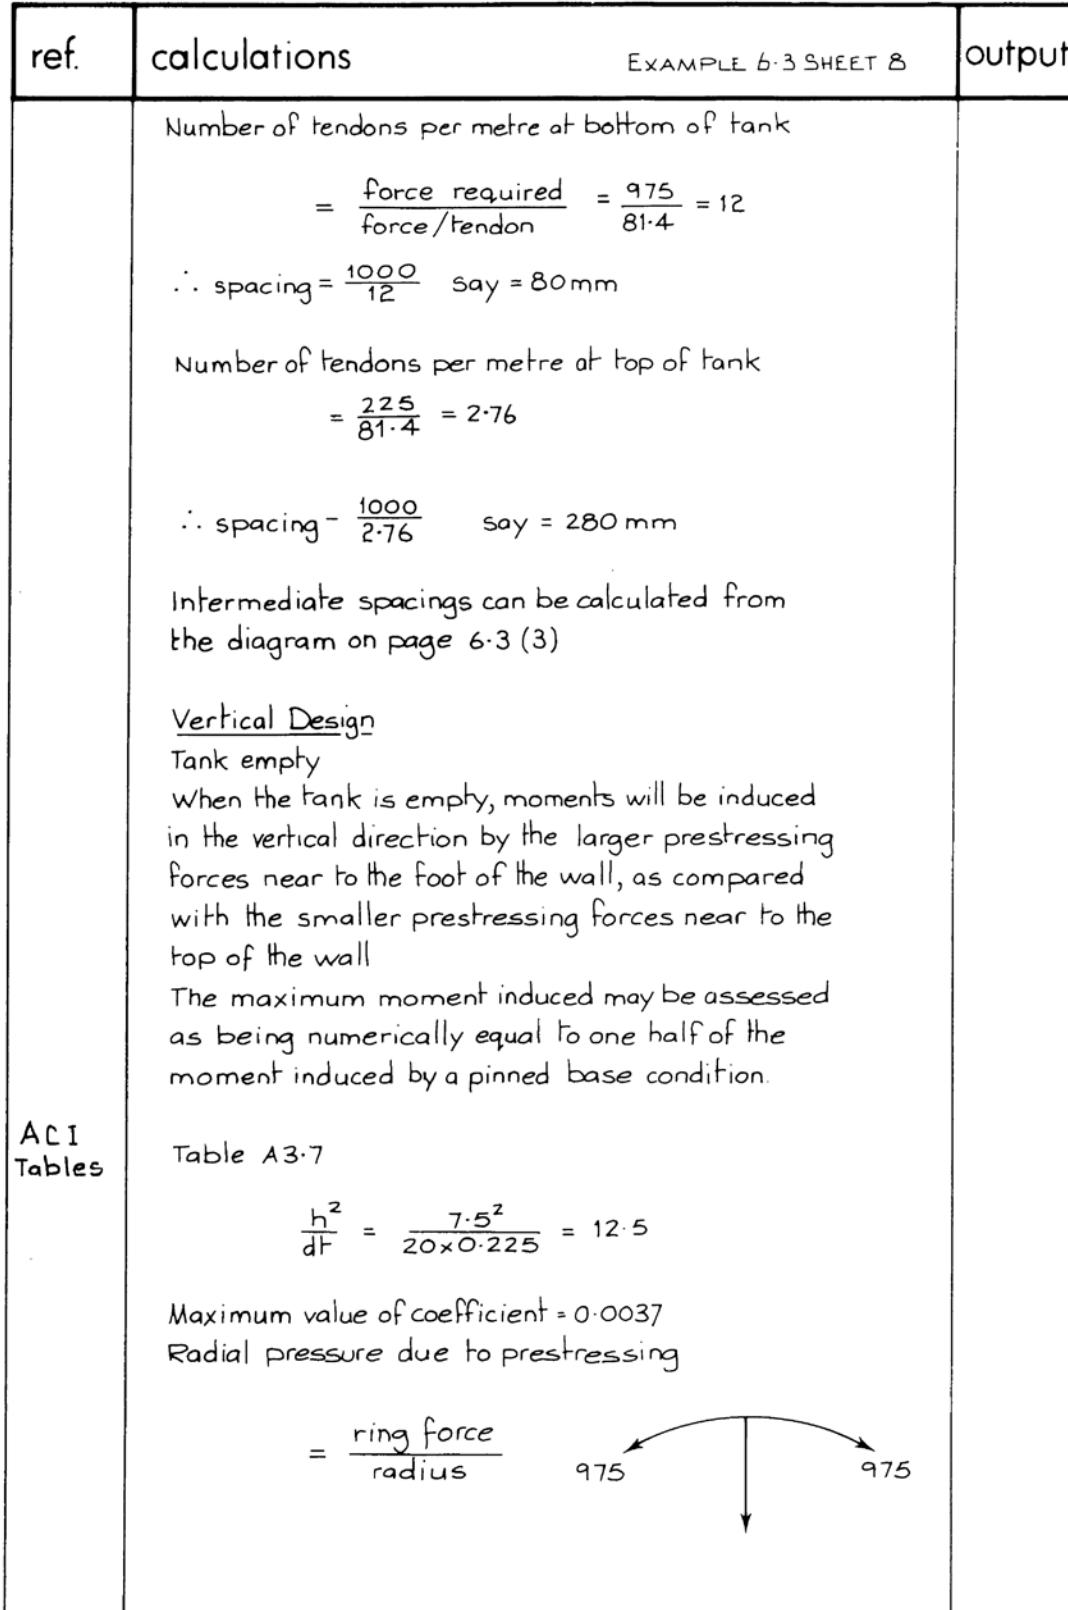 ref.
calculations
EXAMPLE 6·3 SHEET 8
output
Number of tendons per metre at bottom of tank
= force required / force/tendon = 975 / 81·4 = 12
∴ spacing = 1000 / 12 say = 80mm
Number of tendons per metre at top of tank
= 225 / 81·4 = 2·76
∴ spacing - 1000 / 2·76 say = 280 mm
Intermediate spacings can be calculated from
the diagram on page 6·3 (3)
Vertical Design
Tank empty
When the tank is empty, moments will be induced
in the vertical direction by the larger prestressing
forces near to the foot of the wall, as compared
with the smaller prestressing forces near to the
top of the wall
The maximum moment induced may be assessed
as being numerically equal to one half of the
moment induced by a pinned base condition.
ACI
Tables
Table A3·7
h² / dt = 7·5² / 20×0·225 = 12·5
Maximum value of coefficient = 0·0037
Radial pressure due to prestressing
= ring force / radius
975
975